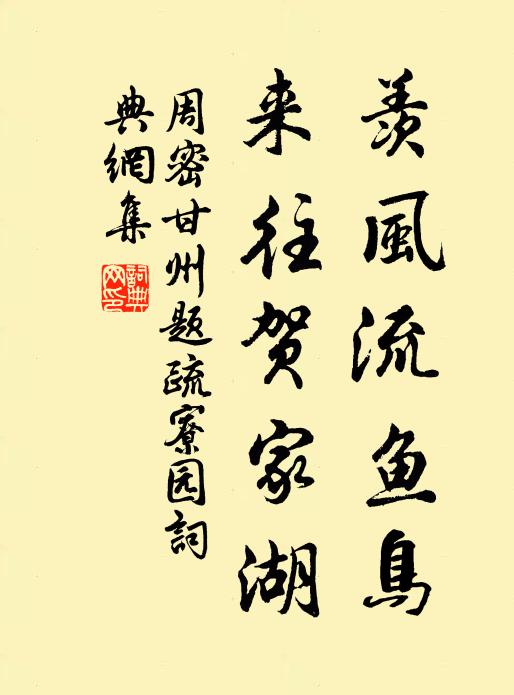 羨風流鱼鳥
来往贺家湖
周密甘州题疏寮园詞
典網集
詞典网印